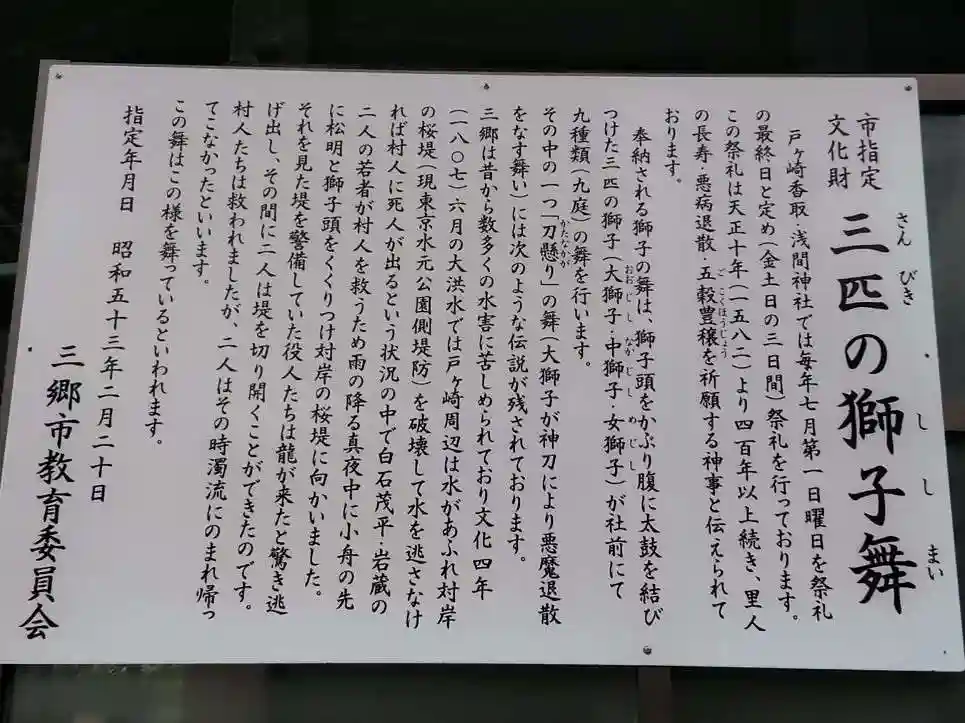 市指定
文化財
三匹の獅子舞
さんびきししまい
戸ヶ崎香取・浅間神社では毎年七月第一日曜日を祭礼
の最終日と定め(金土日の三日間)祭礼を行っております。
この祭礼は天正十年(一五八二)より四百年以上続き、里人
の長寿・悪病退散・五穀豊穣を祈願する神事と伝えられて
ごこくほうじょう
おります。
奉納される獅子の舞は、獅子頭をかぶり腹に太鼓を結び
つけた三匹の獅子(大獅子・中獅子・女獅子)が社前にて
おおじしなかじしめじし
九種類(九庭)の舞を行います。
その中の一つ「刀懸り」の舞(大獅子が神刀により悪魔退散
かたなかか
をなす舞い)には次のような伝説が残されております。
三郷は昔から数多くの水害に苦しめられており文化四年
(一八〇七)六月の大洪水では戸ヶ崎周辺は水があふれ対岸
の桜堤(現東京水元公園側堤防)を破壊して水を逃さなけ
れば村人に死人が出るという状況の中で白石茂平・岩蔵の
二人の若者が村人を救うため雨の降る真夜中に小舟の先
に松明と獅子頭をくくりつけ対岸の桜堤に向かいました。
それを見た堤を警備していた役人たちは龍が来たと驚き逃
げ出し、その間に二人は堤を切り開くことができたのです。
村人たちは救われましたが、二人はその時濁流にのまれ帰っ
てこなかったといいます。
この舞はこの様を舞っているといわれます。
指定年月日 昭和五十三年二月二十日
三郷市教育委員会